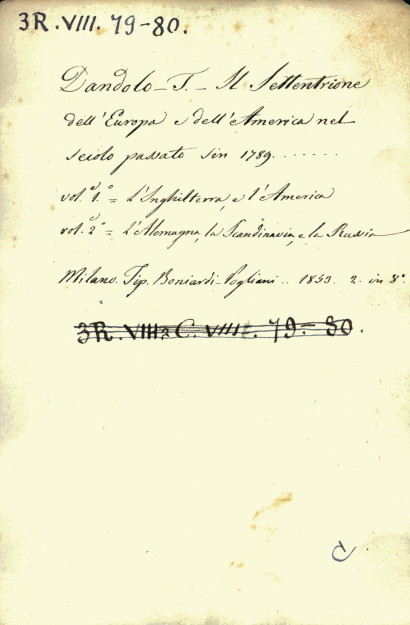 3R.VIII.79-80.
Dandolo - T. - Il Settentrione
dell'Europa e dell'America nel
secolo passato sin 1789.......
vol.º 1.º = L'Inghilterra, e l'America
vol.º 2º = L'Alemagna, la Scandinavia, e la Russia
Milano. Tip. Boniardi-Pogliani .. 1853. 2. in 8º
3R. VIII. C. VIII. 79.- 80.
C